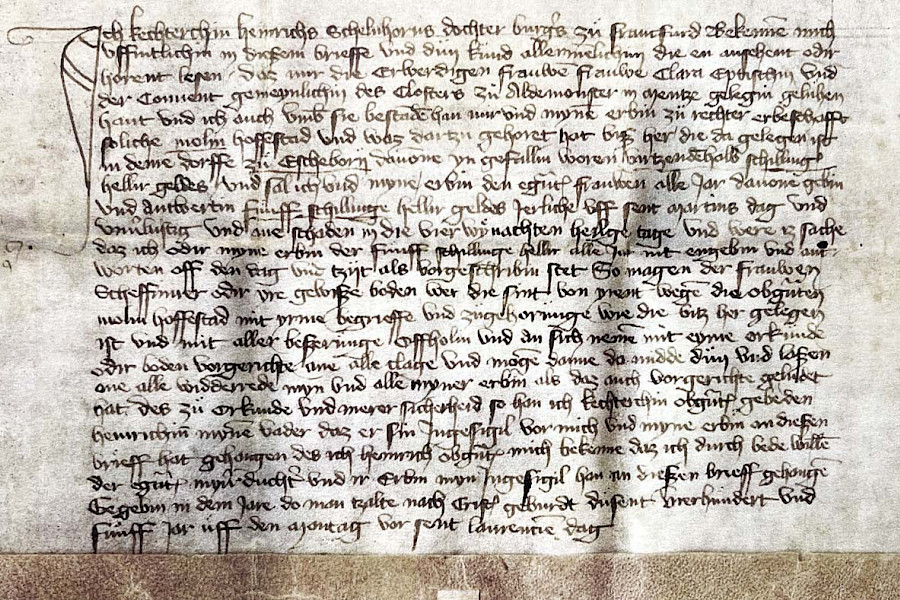 Ich kechterchin heinrichs Schelnhorns dochter burg's zü franckfurd Bekennē mich
uffintlichin in diesem brieffe vnd dün kund allermelichin die en ansehent odir
horent lesen, daz mir die Erwerdigen frauwē frauwe Clara Eptischin vnd
der Convent gemeynlichin des Closters zu Aldemonster in mentze gelegin geluhen
hant vnd ich auch vmb sie bestadē han mir vnd mynē erbin zü rechter erbeschafft
soliche molin hoffestad vnd waz dartzu gehoret hat biz her die da gelegen ist
in deme dorffe zu Escheborn dauone yn gefallin woren virtzendehalb schilling
hellir geldes, vnd sal ich vnd myne erbin den egūt frauwen alle Jar dauone gebin
vnd antwertin fünff schillinge hellir geldes Jerliche vff sent martins dag vnd
vnuerlustig vnd ane schaden in die vier wynachten heilge tage vnd were iz sache
daz ich odir myne erbin der fünff schillinge hellir alle Jar nit engebin vnd ant-
worten off den dag vnd tzijt als vorgeschribin stet So magen der frauwen
Scheffener odir yre gewisse boden wer die sint von yrent wegē die obgūten
molin hoffestad mit yrme begrieffe vnd zugehorunge wie die biz her gelegen
ist vnd mit aller besserunge Offholin vnd an sich nemē mit eyme orkunde
odir boden vorgerichte ane alle clage vnd mogē danne da midde dün vnd laßen
ane alle widderrede myn vnd alle myner erbin als daz auch vorgerichte geludet
hat, des zü Orkunde vnd merer sicherheid so han ich kechterchin obgūt gebeden
heinrichin mynē vader daz er sin Ingesigil vor mich vnd myne erbin an diesen
brieff hat gehangen des ich heinrich obgūt mich bekenne daz ich durch bede willē
der egūt myn' ducht' vnd ir Erbin myn Ingesigil han an diesen brieff gehangē
Gegebin in dem Jare do man tzalte nach Crist geburdt dusent vierhundert vnd
fünff Jar uff den montag vor sent laurencie dag